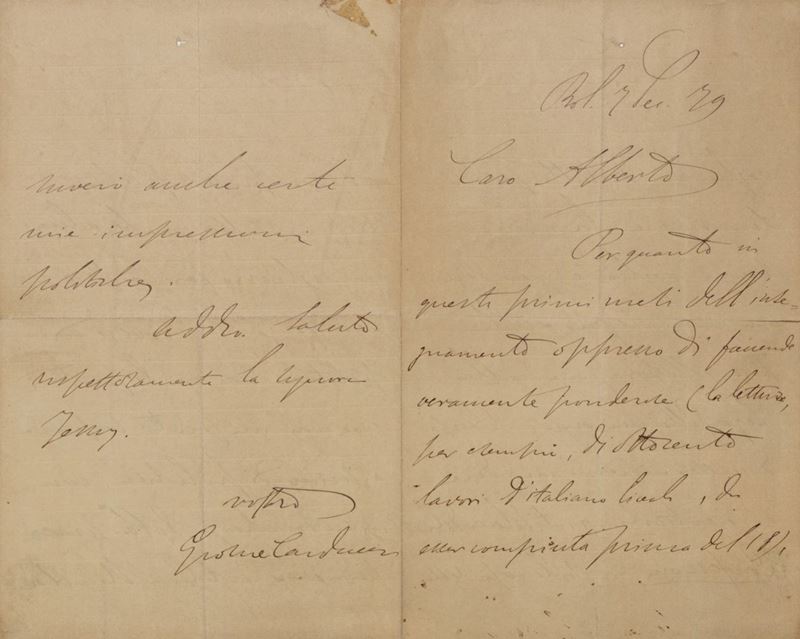 Bol. 7 Dec. 79
Caro Alberto
Per quanto in
questi primi mesi dell'inse-
gnamento oppresso di faccende
veramente ponderose (la lettura,
per esempio, di ottocento
lavori d'italiano liceali, da
esser compiuta prima del 18),
anche certe
mie impressioni
politiche.
Addio. Saluto
rispettosamente la signora
Jessy.
vostro
Giosue Carducci